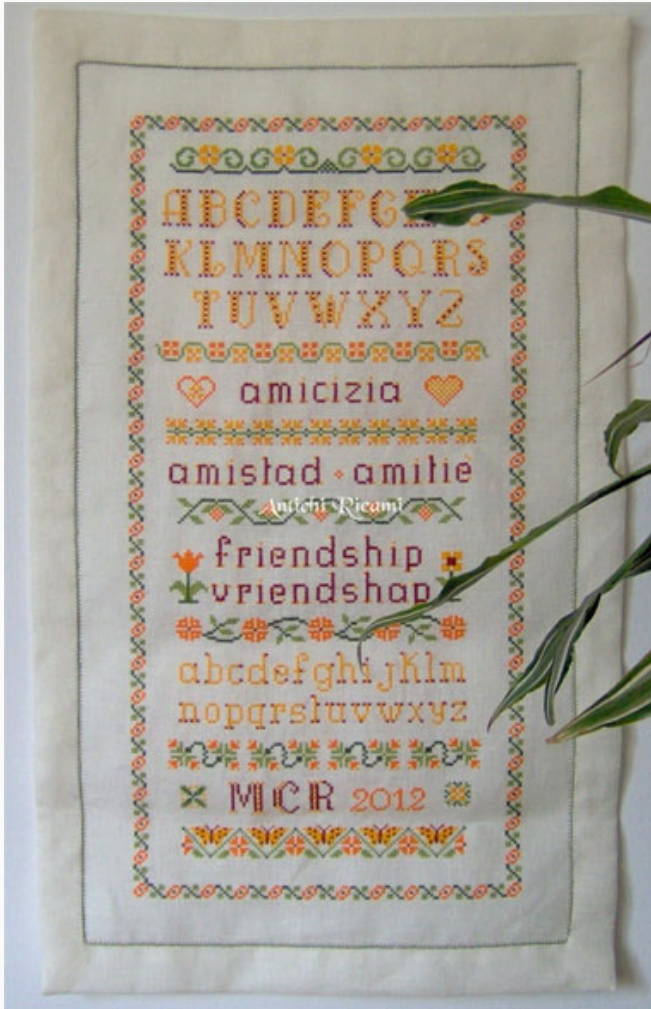 ABCDEFG
KLMNOPQRS
TUVWXYZ
amicizia
amistad · amitiè
Antichi Ricami
friendship
vriendshap
abcdefghijklm
nopqrstuvwxyz
MCR 2012